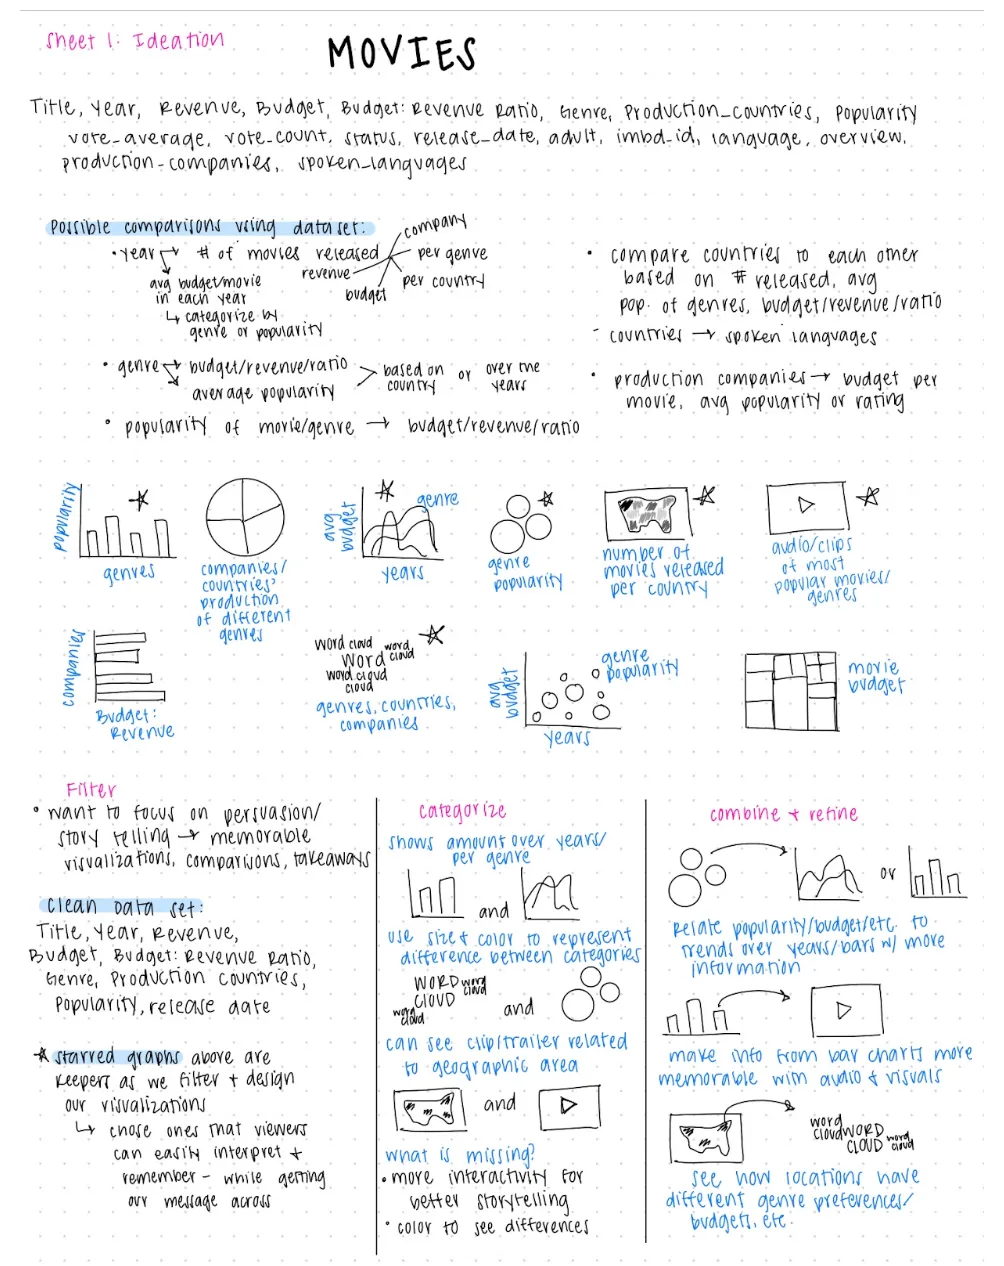 Sheet 1: Ideation
MOVIES
Title, Year, Revenue, Budget, Budget: Revenue Ratio, Genre, Production_countries, Popularity
vote_average, vote_count, status, release_date, adult, imbd_id, language, overview,
production_companies, spoken_languages
Possible comparisons using data set:
• year → # of movies released
company
per genre
per country
revenue
budget
avg budget/movie
in each year
↳ categorize by
genre or popularity
• genre → budget/revenue/ratio
average popularity
> based on
country or over the
years
• popularity of movie/genre → budget/revenue/ratio
• compare countries to each other
based on # released, avg
pop. of genres, budget/revenue/ratio
- countries → spoken languages
• production companies → budget per
movie, avg popularity or rating
popularity
genres
companies/
countries'
production
of different
genres
avg
budget
genre
years
genre
popularity
number of
movies released
per country
audio/clips
of most
popular movies/
genres
companies
Budget:
Revenue
word cloud word
cloud
word
word cloud
cloud
genres, countries,
companies
avg
budget
genre
popularity
years
movie
budget
Filter
• want to focus on persuasion/
story telling → memorable
visualizations, comparisons, takeaways
Clean Data set:
Title, Year, Revenue,
Budget, Budget: Revenue Ratio,
Genre, Production Countries,
Popularity, release date
starred graphs above are
keepers as we filter + design
our visualizations
↳ chose ones that viewers
can easily interpret +
remember - while getting
our message across
categorize
shows amount over years/
per genre
and
use size + color to represent
difference between categories
WORD word
CLOUD cloud
word
cloud
and
can see clip/trailer related
to geographic area
and
what is missing?
• more interactivity for
better storytelling
• color to see differences
combine + refine
or
Relate popularity/budget/etc. to
trends over years/bars w/ more
information
make info from bar charts more
memorable with audio + visuals
word
cloud WORD
CLOUD word
cloud
see how locations have
different genre preferences/
budgets, etc.